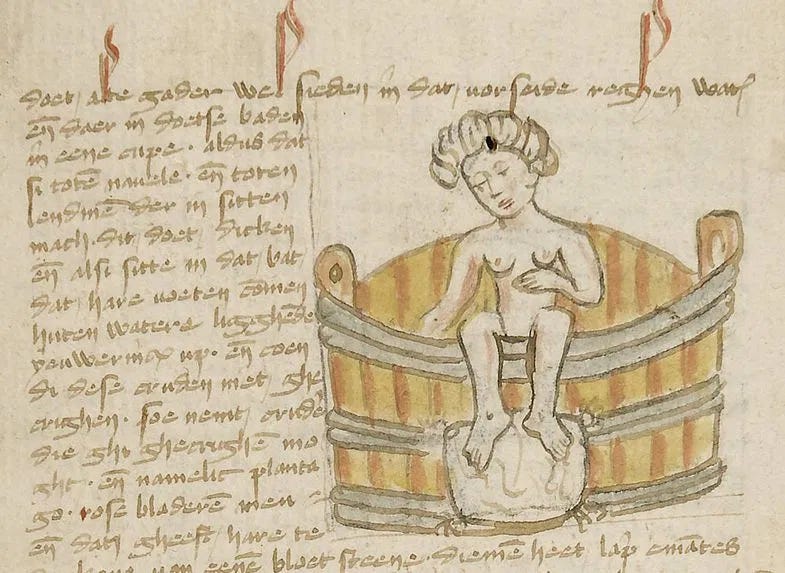 doet alte gader wel sieden in dat vorseide reghen wat
eñ daer in doetse baden
in eene cupe · aldus dat
si totē navele · eñ toten
lendinē der in sitten
mach · dit doet dicken
eñ alsi sitte in dat bat
dat hare voeten comen
huten watere ligghende
up · eñ coen
di dese cruden niet ghe
crighen · soe nemt crudē
die ghi ghecrighē mo
ght · eñ namelic planta
go · rose bladerē
eñ dat gheeft hare te
van eenē bloet steene · diemē heet lapis ematites